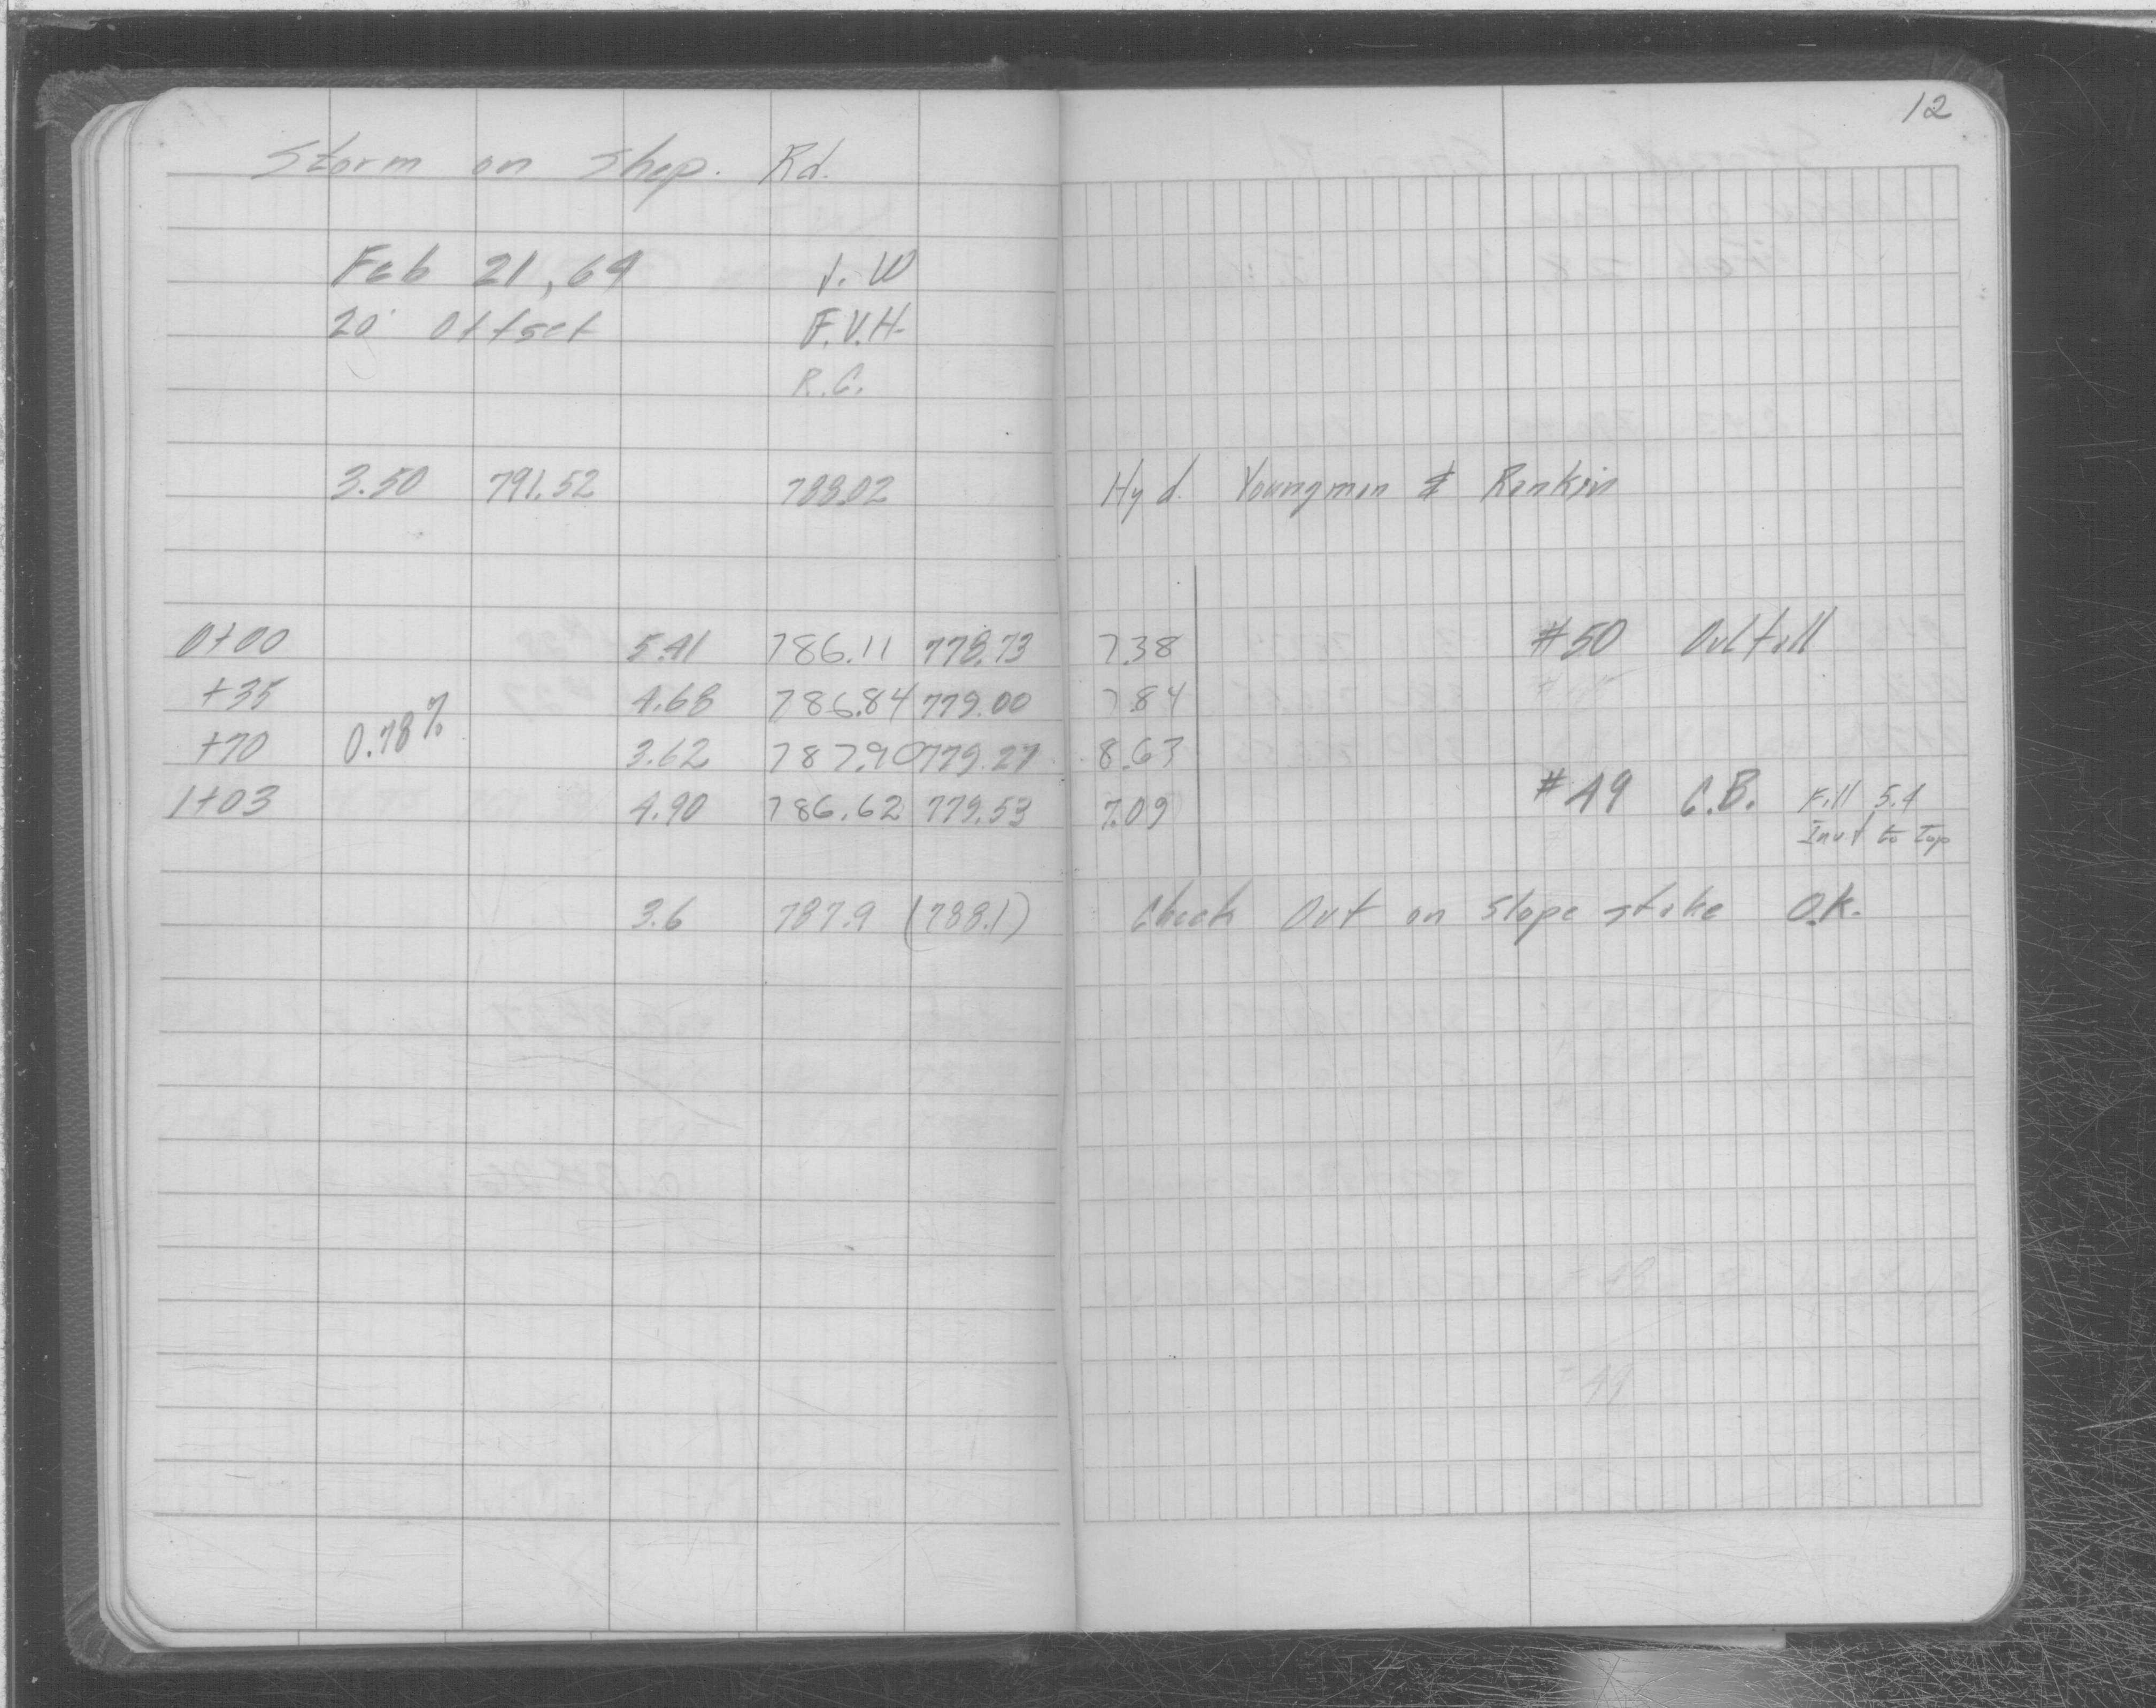 12
Storm on Shop. Rd.
Feb 21, 69 J. W
20' Offset F.V.H.
R.C.
3.50 791.52 788.02 Hyd. Youngman & Rankin
0+00 5.41 786.11 778.73 7.38 #50 Outfall
+35 4.68 786.84 779.00 7.84
0.78%
+70 3.62 787.90 779.27 8.63
1+03 4.90 786.62 779.53 7.09 #49 C.B. Fill 5.4
Invt to top
3.6 787.9 (788.1) Check Out on Slope stake O.K.